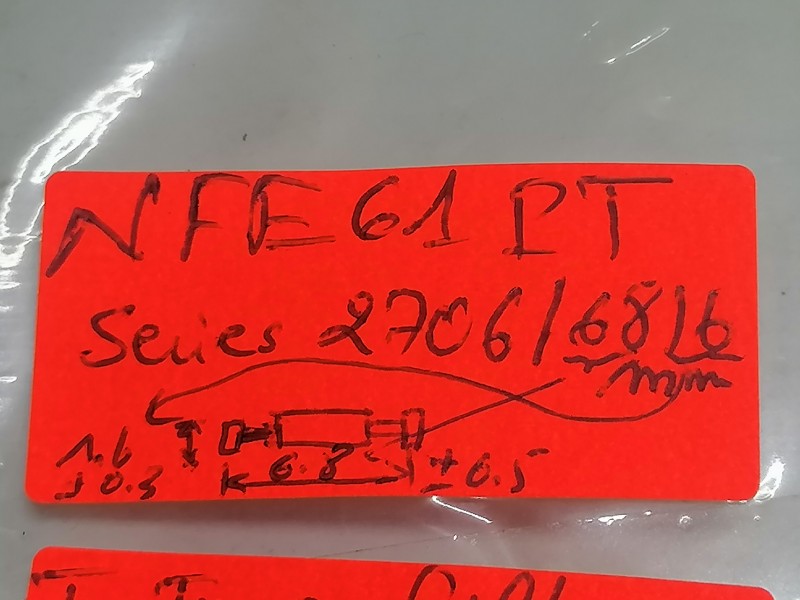 NFE 61 PT
Series 2706/6816
mm
1.6
±0.3
6.8
±0.5